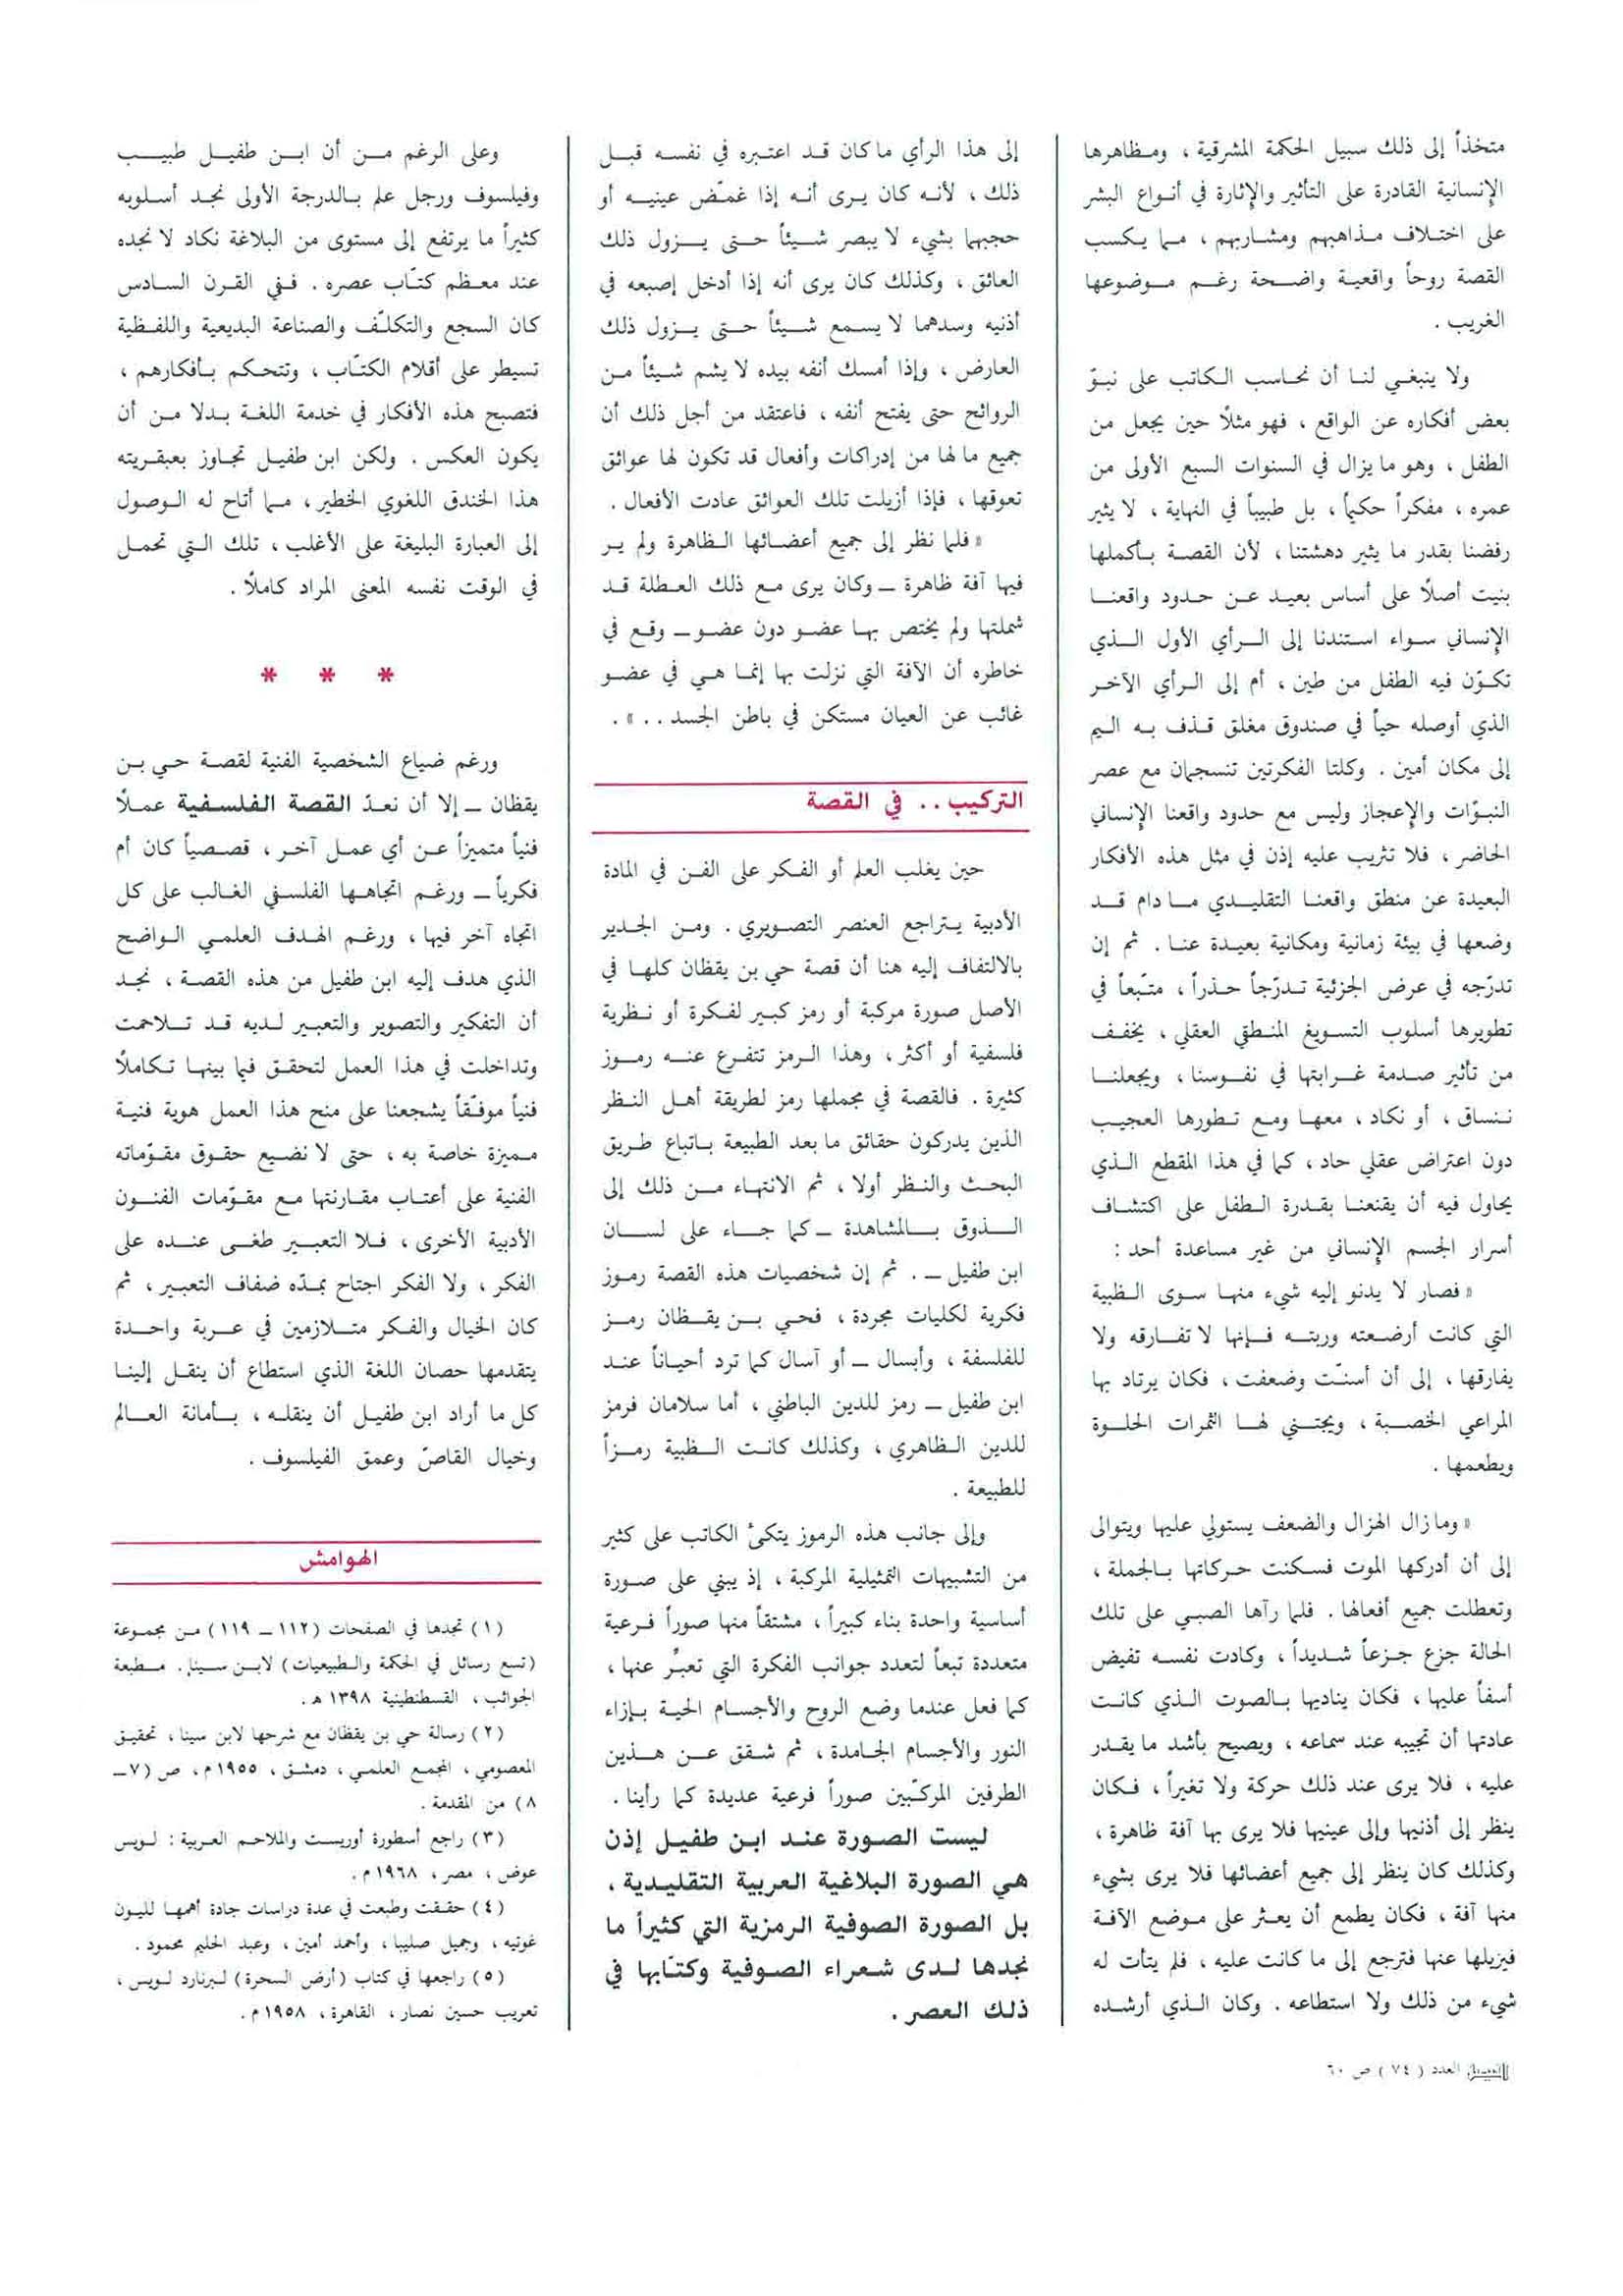 متخذاً إلى ذلك سبيل الحكمة المشرقية ، ومظاهرها
الإنسانية القادرة على التأثير والإثارة في أنواع البشر
على اختلاف مذاهبهم ومشاربهم ، مما يكسب
القصة روحاً واقعية واضحة رغم موضوعها
الغريب .
ولا ينبغي لنا أن نحاسب الكاتب على نبوّ
بعض أفكاره عن الواقع ، فهو مثلاً حين يجعل من
الطفل ، وهو ما يزال في السنوات السبع الأولى من
عمره ، مفكراً حكيماً ، بل طبيباً في النهاية ، لا يثير
رفضنا بقدر ما يثير دهشتنا ، لأن القصة بأكملها
بنيت أصلاً على أساس بعيد عن حدود واقعنا
الإنساني سواء استندنا إلى الرأي الأول الذي
تكوّن فيه الطفل من طين ، أم إلى الرأي الآخر
الذي أوصله حياً في صندوق مغلق قذف به اليم
إلى مكان أمين . وكلتا الفكرتين تنسجمان مع عصر
النبوّات والإعجاز وليس مع حدود واقعنا الإنساني
الحاضر ، فلا تثريب عليه إذن في مثل هذه الأفكار
البعيدة عن منطق واقعنا التقليدي ما دام قد
وضعها في بيئة زمانية ومكانية بعيدة عنا . ثم إن
تدرّجه في عرض الجزئية تدرّجاً حذراً ، متّبعاً في
تطويرها أسلوب التسويغ المنطقي العقلي ، يخفف
من تأثير صدمة غرابتها في نفوسنا ، ويجعلنا
ننساق ، أو نكاد ، معها ومع تطورها العجيب
دون اعتراض عقلي حاد ، كما في هذا المقطع الذي
يحاول فيه أن يقنعنا بقدرة الطفل على اكتشاف
أسرار الجسم الإنساني من غير مساعدة أحد :
« فصار لا يدنو إليه شيء منها سوى الظبية
التي كانت أرضعته وربته فإنها لا تفارقه ولا
يفارقها ، إلى أن أسنّت وضعفت ، فكان يرتاد بها
المراعي الخصبة ، ويجتني لها الثمرات الحلوة
ويطعمها .
« وما زال الهزال والضعف يستولي عليها ويتوالى
إلى أن أدركها الموت فسكنت حركاتها بالجملة ،
وتعطلت جميع أفعالها . فلما رآها الصبي على تلك
الحالة جزع جزعاً شديداً ، وكادت نفسه تفيض
أسفاً عليها ، فكان يناديها بالصوت الذي كانت
عادتها أن تجيبه عند سماعه ، ويصيح بأشد ما يقدر
عليه ، فلا يرى عند ذلك حركة ولا تغيراً ، فكان
ينظر إلى أذنيها وإلى عينيها فلا يرى بها آفة ظاهرة ،
وكذلك كان ينظر إلى جميع أعضائها فلا يرى بشيء
منها آفة ، فكان يطمع أن يعثر على موضع الآفة
فيزيلها عنها فترجع إلى ما كانت عليه ، فلم يتأت له
شيء من ذلك ولا استطاعه . وكان الذي أرشده
إلى هذا الرأي ما كان قد اعتبره في نفسه قبل
ذلك ، لأنه كان يرى أنه إذا غمّض عينيه أو
حجبهما بشيء لا يبصر شيئاً حتى يزول ذلك
العائق ، وكذلك كان يرى أنه إذا أدخل إصبعه في
أذنيه وسدهما لا يسمع شيئاً حتى يزول ذلك
العارض ، وإذا أمسك أنفه بيده لا يشم شيئاً من
الروائح حتى يفتح أنفه ، فاعتقد من أجل ذلك أن
جميع ما لها من إدراكات وأفعال قد تكون لها عوائق
تعوقها ، فإذا أزيلت تلك العوائق عادت الأفعال .
« فلما نظر إلى جميع أعضائها الظاهرة ولم ير
فيها آفة ظاهرة ــ وكان يرى مع ذلك العطلة قد
شملتها ولم يختص بها عضو دون عضو ــ وقع في
خاطره أن الآفة التي نزلت بها إنما هي في عضو
غائب عن العيان مستكن في باطن الجسد . . » .
التركيب . . في القصة
حين يغلب العلم أو الفكر على الفن في المادة
الأدبية يتراجع العنصر التصويري . ومن الجدير
بالالتفاف إليه هنا أن قصة حي بن يقظان كلها في
الأصل صورة مركبة أو رمز كبير لفكرة أو نظرية
فلسفية أو أكثر ، وهذا الرمز تتفرع عنه رموز
كثيرة . فالقصة في مجملها رمز لطريقة أهل النظر
الذين يدركون حقائق ما بعد الطبيعة باتباع طريق
البحث والنظر أولا ، ثم الانتهاء من ذلك إلى
الذوق بالمشاهدة ــ كما جاء على لسان
ابن طفيل ــ . ثم إن شخصيات هذه القصة رموز
فكرية لكليات مجردة ، فحي بن يقظان رمز
للفلسفة ، وأبسال ــ أو آسال كما ترد أحياناً عند
ابن طفيل ــ رمز للدين الباطني ، أما سلامان فرمز
للدين الظاهري ، وكذلك كانت الظبية رمزاً
للطبيعة .
وإلى جانب هذه الرموز يتكئ الكاتب على كثير
من التشبيهات التمثيلية المركبة ، إذ يبني على صورة
أساسية واحدة بناء كبيراً ، مشتقاً منها صوراً فرعية
متعددة تبعاً لتعدد جوانب الفكرة التي تعبّر عنها ،
كما فعل عندما وضع الروح والأجسام الحية بإزاء
النور والأجسام الجامدة ، ثم شقق عن هذين
الطرفين المركّبين صوراً فرعية عديدة كما رأينا .
ليست الصورة عند ابن طفيل إذن
هي الصورة البلاغية العربية التقليدية ،
بل الصورة الصوفية الرمزية التي كثيراً ما
نجدها لدى شعراء الصوفية وكتّابها في
ذلك العصر .
وعلى الرغم من أن ابن طفيل طبيب
وفيلسوف ورجل علم بالدرجة الأولى نجد أسلوبه
كثيراً ما يرتفع إلى مستوى من البلاغة نكاد لا نجده
عند معظم كتّاب عصره . ففي القرن السادس
كان السجع والتكلّف والصناعة البديعية واللفظية
تسيطر على أقلام الكتّاب ، وتتحكم بأفكارهم ،
فتصبح هذه الأفكار في خدمة اللغة بدلا من أن
يكون العكس . ولكن ابن طفيل تجاوز بعبقريته
هذا الخندق اللغوي الخطير ، مما أتاح له الوصول
إلى العبارة البليغة على الأغلب ، تلك التي تحمل
في الوقت نفسه المعنى المراد كاملاً .
* * *
ورغم ضياع الشخصية الفنية لقصة حي بن
يقظان ــ إلا أن نعدّ القصة الفلسفية عملاً
فنياً متميزاً عن أي عمل آخر ، قصصياً كان أم
فكرياً ــ ورغم اتجاهها الفلسفي الغالب على كل
اتجاه آخر فيها ، ورغم الهدف العلمي الواضح
الذي هدف إليه ابن طفيل من هذه القصة ، نجد
أن التفكير والتصوير والتعبير لديه قد تلاحمت
وتداخلت في هذا العمل لتحقق فيما بينها تكاملاً
فنياً موفّقاً يشجعنا على منح هذا العمل هوية فنية
مميزة خاصة به ، حتى لا نضيع حقوق مقوّماته
الفنية على أعتاب مقارنتها مع مقوّمات الفنون
الأدبية الأخرى ، فلا التعبير طغى عنده على
الفكر ، ولا الفكر اجتاح بمدّه ضفاف التعبير ، ثم
كان الخيال والفكر متلازمين في عربة واحدة
يتقدمها حصان اللغة الذي استطاع أن ينقل إلينا
كل ما أراد ابن طفيل أن ينقله ، بأمانة العالم
وخيال القاصّ وعمق الفيلسوف .
الهوامش
( ١ ) تجدها في الصفحات ( ١١٢ ــ ١١٩ ) من مجموعة
( تسع رسائل في الحكمة والطبيعيات ) لابن سينا . مطبعة
الجوائب ، القسطنطينية ١٣٩٨ هـ .
( ٢ ) رسالة حي بن يقظان مع شرحها لابن سينا ، تحقيق
المعصومي ، المجمع العلمي ، دمشق ، ١٩٥٥ م ، ص ( ٧ ــ
٨ ) من المقدمة .
( ٣ ) راجع أسطورة أوريست والملاحم العربية : لويس
عوض ، مصر ، ١٩٦٨ م .
( ٤ ) حققت وطبعت في عدة دراسات جادة أهمها لليون
غوتيه ، وجميل صليبا ، وأحمد أمين ، وعبد الحليم محمود .
( ٥ ) راجعها في كتاب ( أرض السحرة ) لبرنارد لويس ،
تعريب حسين نصار ، القاهرة ، ١٩٥٨ م .
الفيصل العدد ( ٧٤ ) ص ٦٠